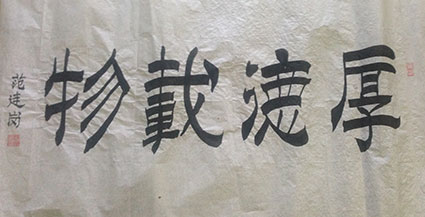 厚德載物
范建岗